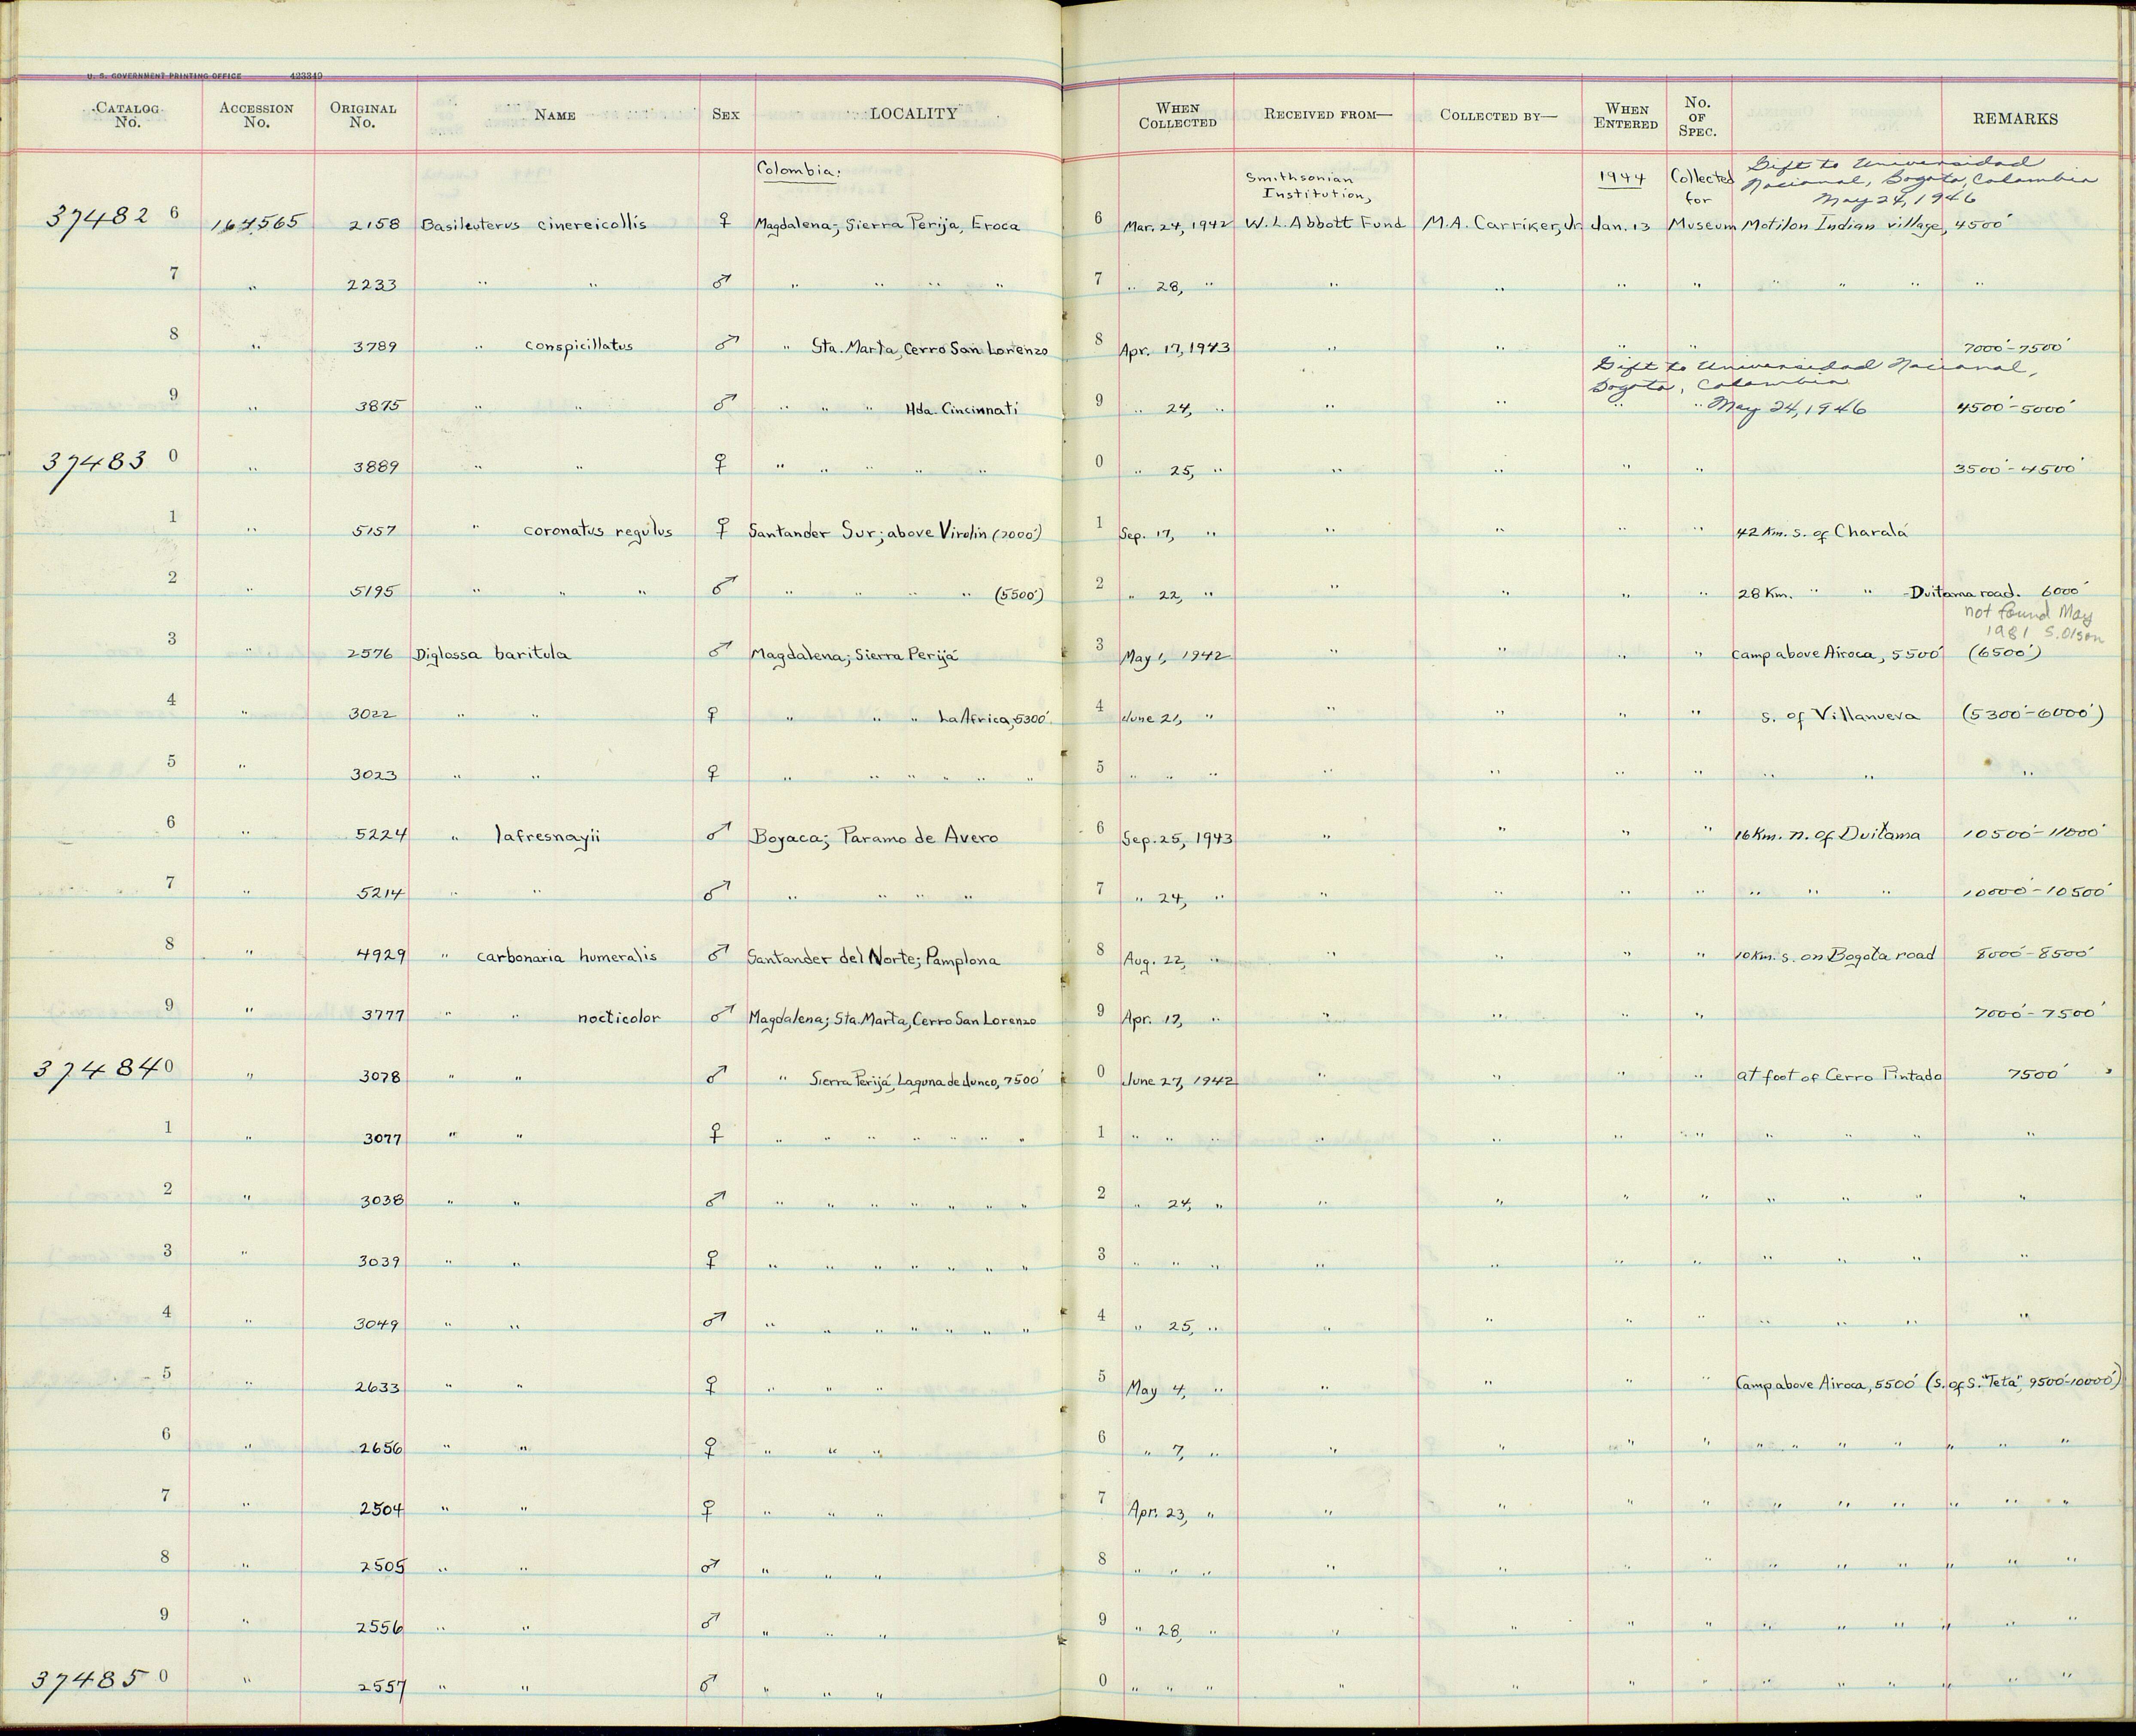 U. S. GOVERNMENT PRINTING OFFICE 423349
CATALOG No. ACCESSION No. ORIGINAL No. NAME SEX LOCALITY WHEN COLLECTED RECEIVED FROM— COLLECTED BY— WHEN ENTERED No. OF SPEC. REMARKS
Colombia: Smithsonian Institution, 1944 Collected for Gift to Universidad Nacional, Bogota, Colombia May 24, 1946
37482 6 164565 2158 Basileuterus cinereicollis ♀ Magdalena; Sierra Perija, Eroca 6 Mar. 24, 1942 W. L. Abbott Fund M. A. Carriker, Jr. Jan. 13 Museum Motilon Indian village, 4500'
7 " 2233 " " ♂ " " " " 7 " 28, " " " " " " " " "
8 " 3789 " conspicillatus ♂ " Sta. Marta, Cerro San Lorenzo 8 Apr. 17, 1943 " " " " 7000'-7500'
Gift to Universidad Nacional,
Bogota, Colombia
9 " 3875 " " ♂ " " " Hda. Cincinnati 9 " 24, " " " " " May 24, 1946 4500'-5000'
37483 0 " 3889 " " ♀ " " " " " 0 " 25, " " " " " 3500'-4500'
1 " 5157 " coronatus regulus ♀ Santander Sur; above Virolin (7000') 1 Sep. 17, " " " " " 42 Km. S. of Charalá
2 " 5195 " " " ♂ " " " " (5500') 2 " 22, " " " " " 28 Km. " " -Duitama road. 6000'
not found May
1981 S. Olson
3 " 2576 Diglossa baritula ♂ Magdalena; Sierra Perijá 3 May 1, 1942 " " " " Camp above Airoca, 5500' (6500')
4 " 3022 " " ♀ " " " La Africa, 5300' 4 June 21, " " " " " S. of Villanueva (5300'-6000')
5 " 3023 " " ♀ " " " " " " 5 " " " " " " " " " "
6 " 5224 " lafresnayii ♂ Boyaca; Paramo de Avero 6 Sep. 25, 1943 " " " " 16 Km. n. of Duitama 10500'-11000'
7 " 5214 " " ♂ " " " " 7 " 24, " " " " " " " " 10000'-10500'
8 " 4929 " carbonaria humeralis ♂ Santander del Norte; Pamplona 8 Aug. 22, " " " " " 10 Km. S. on Bogota road 8000'-8500'
9 " 3777 " " nocticolor ♂ Magdalena; Sta. Marta, Cerro San Lorenzo 9 Apr. 17, " " " " " 7000'-7500'
37484 0 " 3078 " " ♂ " Sierra Perijá, Laguna de Junco, 7500' 0 June 27, 1942 " " " " at foot of Cerro Pintado 7500'
1 " 3077 " " ♀ " " " " " " " 1 " " " " " " " " " " "
2 " 3038 " " ♂ " " " " " " " 2 " 24, " " " " " " " " "
3 " 3039 " " ♀ " " " " " " " 3 " " " " " " " " " " "
4 " 3049 " " ♂ " " " " " " " 4 " 25, " " " " " " " " "
5 " 2633 " " ♀ " " " 5 May 4, " " " " " Camp above Airoca, 5500' (S. of S. "Teta", 9500'-10000')
6 " 2656 " " ♀ " " " 6 " 7, " " " " " " " " " " " "
7 " 2504 " " ♀ " " " 7 Apr. 23, " " " " " " " " " " " "
8 " 2505 " " ♂ " " " 8 " " " " " " " " " " " " "
9 " 2556 " " ♂ " " " 9 " 28, " " " " " " " " " " "
37485 0 " 2557 " " ♂ " " " 0 " " " " " " " " " " " " "